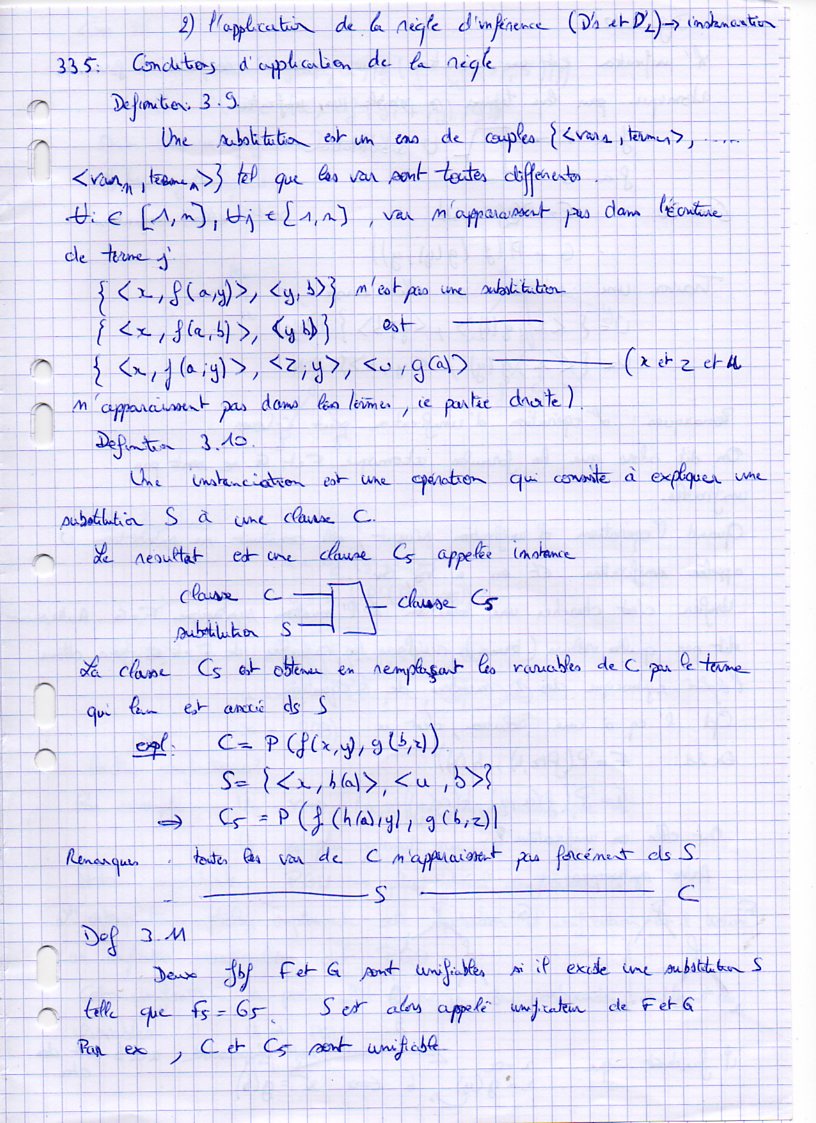 2) l'application de la règle d'inférence (D'1 et D'2) → instanciation
3.3.5: Conditions d'application de la règle
Definition. 3.9.
Une substitution est un ens de couples {<var1, terme1>, .....
<varn, termen>} tel que les var sont toutes différentes.
∀i ∈ [1,n], ∀j ∈ [1,n], var n'apparaissent pas dans l'écriture
de terme j
{ <x, f(a,y)>, <y, b>} n'est pas une substitution
{ <x, f(a,b)>, <y b>} est ———
{ <x, f(a,y)>, <z,y>, <u, g(a)> ——— (x et z et u
n'apparaissent pas dans les termes, ie partie droite).
Definition 3.10.
Une instanciation est une opération qui consiste à expliquer une
substitution S à une clause C.
Le resultat est une clause CS appelée instance
clause C
clausse CS
substitution S
La classe CS est obtenu en remplaçant les variables de C par le terme
qui leur est associé ds S
expl: C= P(f(x,y), g(b,z))
S= {<x, h(a)>, <u, b>}
⇒ CS = P(f(h(a),y), g(b,z)|
Remarques . toutes les var de C n'apparaissent pas forcément ds S
. ——— S ——— C
Def 3.11
Deux fbf F et G sont unifiables si il existe une substitution S
telle que FS = GS. S est alors appelé unificateur de F et G
Par ex, C et CS sont unifiable